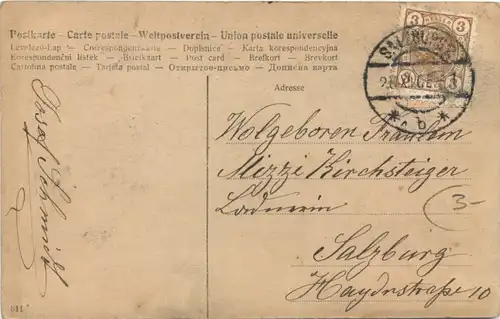 Postkarte – Carte postale – Weltpostverein – Union postale universelle
Levelező-Lap — Correspondenzkarte — Dopisnice — Karta korespondencyjna
Korespondenční lístek — Briefkaart — Post card — Brefkort — Brevkort
Cartolina postale — Tarjeta postal — Открытое-письмо — Дописна карта
Adresse
3 3
SALZBURG
* b *
Josef Schmidt
Wolgeboren Fräulein
Mizzi Kirchsteiger
Salzburg
Haydnstraße 10
3-
811